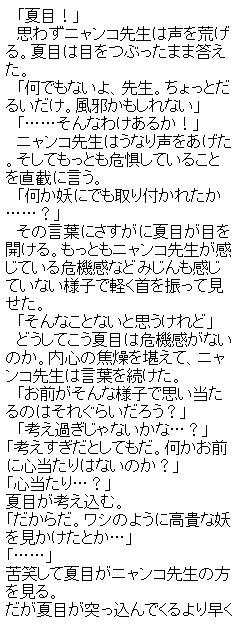 「夏目！」
　思わずニャンコ先生は声を荒げ
る。夏目は目をつぶったまま答え
た。
　「何でもないよ、先生。ちょっとだ
るいだけ。風邪かもしれない」
　「……そんなわけあるか！」
　ニャンコ先生はうなり声をあげた
。そしてもっとも危惧していること
を直截に言う。
　「何か妖にでも取り付かれたか
……？」
　その言葉にさすがに夏目が目を
開ける。もっともニャンコ先生が感
じている危機感などみじんも感じ
ていない様子で軽く首を振って見
せた。
　「そんなことないと思うけれど」
　どうしてこう夏目は危機感がない
のか。内心の焦燥を堪えて、ニャ
ンコ先生は言葉を続けた。
　「お前がそんな様子で思い当た
るのはそれぐらいだろう？」
　「考え過ぎじゃないかな…？」
「考えすぎだとしてもだ。何かお前
に心当たりはないのか？」
「心当たり…？」
夏目が考え込む。
「だからだ。ワシのように高貴な妖
を見かけたとか…」
「……」
苦笑して夏目がニャンコ先生の方
を見る。
だが夏目が突っ込んでくるより早く